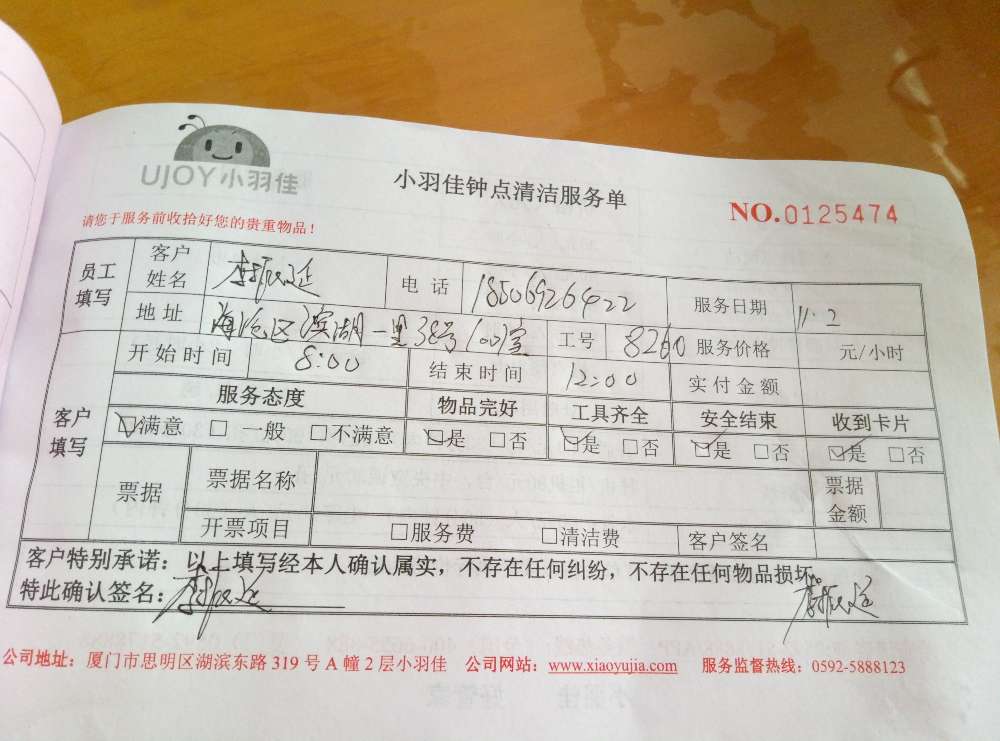 UJOY小羽佳
小羽佳钟点清洁服务单
NO.0125474
请您于服务前收拾好您的贵重物品！
员工填写 客户姓名 李振延 电话 18506926422 服务日期 11.2
地址 海沧区滨湖一里38号1001室 工号 8260 服务价格 元/小时
客户填写 开始时间 8:00 结束时间 12:00 实付金额
服务态度 物品完好 工具齐全 安全结束 收到卡片
☑满意 □一般 □不满意 ☑是 □否 ☑是 □否 ☑是 □否 ☑是 □否
票据 票据名称 票据金额
开票项目 □服务费 □清洁费 客户签名
客户特别承诺：以上填写经本人确认属实，不存在任何纠纷，不存在任何物品损坏。
特此确认签名：李振延 李振延
公司地址：厦门市思明区湖滨东路 319 号 A 幢 2 层小羽佳 公司网站：www.xiaoyujia.com 服务监督热线：0592-5888123